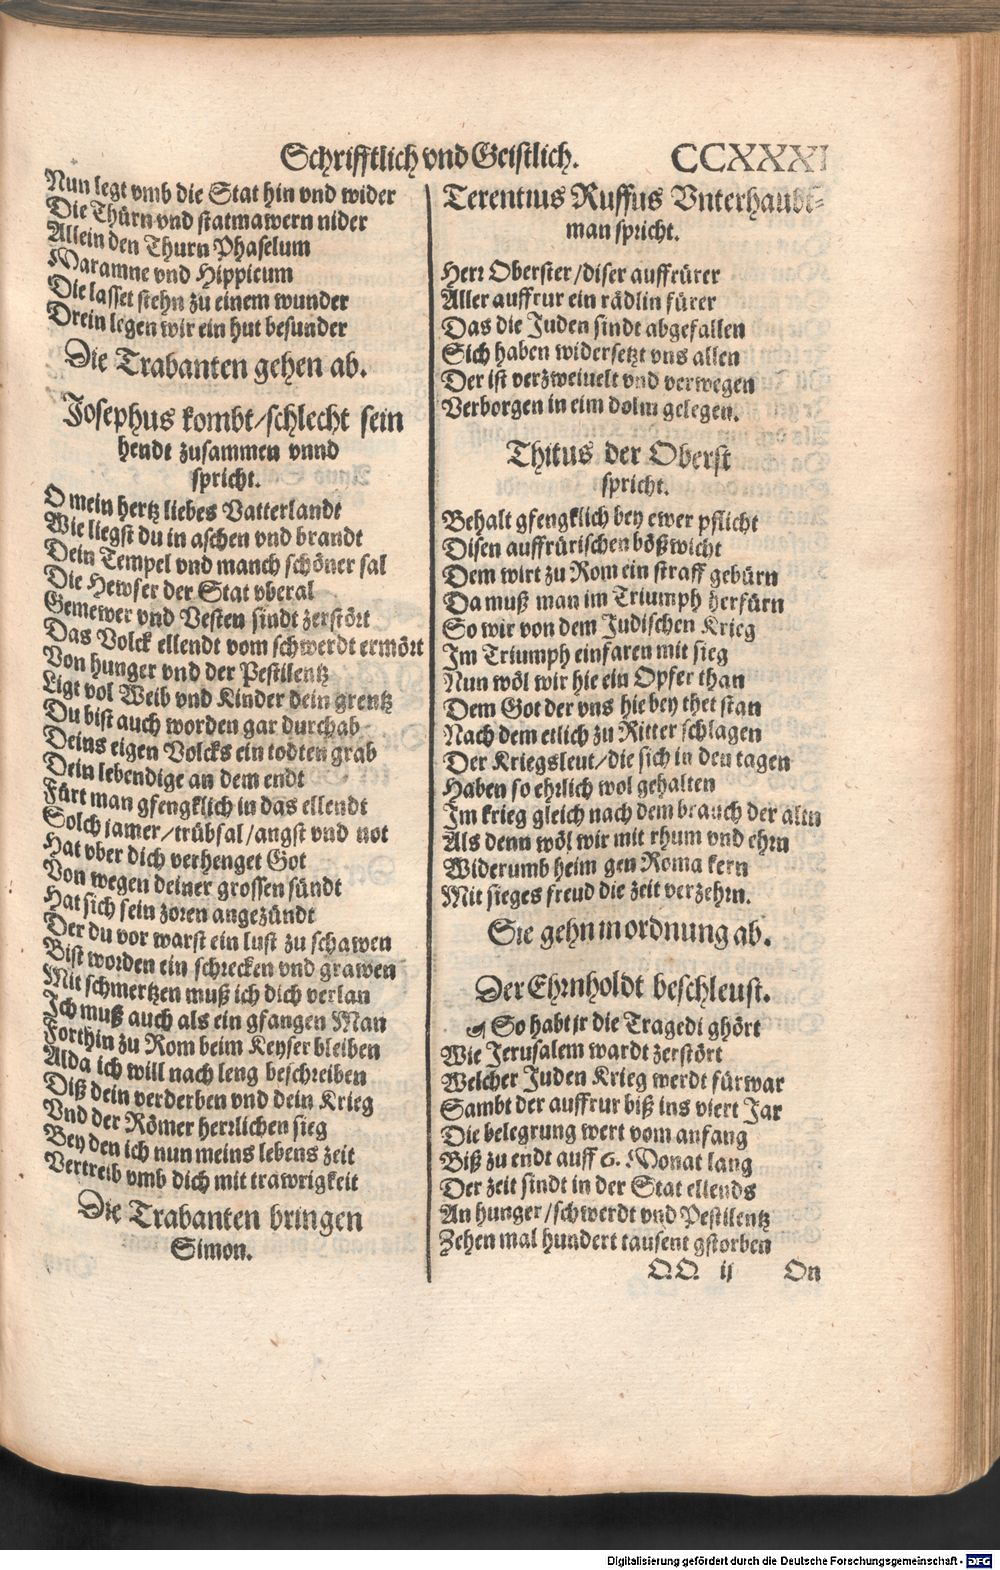 Schrifftlich vnd Geistlich. CCXXXI
Nun legt vmb die Stat hin vnd wider
Die Thürn vnd statmawern nider
Allein den Thurn Phaselum
Maramne vnd Hippicum
Die lasset stehn zu einem wunder
Drein legen wir ein hut besunder
Die Trabanten gehen ab.
Josephus kombt/schlecht sein
hendt zusammen vnnd
spricht.
O mein hertz liebes Vatterlandt
Wie liegst du in aschen vnd brandt
Dein Tempel vnd manch schöner sal
Die Hewser der Stat vberal
Gemewer vnd Vesten sindt zerstört
Das Volck ellendt vom schwerdt ermört
Von hunger vnd der Pestilentz
Ligt vol Weib vnd Kinder dein grentz
Du bist auch worden gar durchab
Deins eigen Volcks ein todten grab
Dein lebendige an dem endt
Fürt man gfengklich in das ellendt
Solch jamer/trübsal/angst vnd not
Hat vber dich verhenget Got
Von wegen deiner grossen sündt
Hat sich sein zoren angezündt
Der du vor warst ein lust zu schawen
Bist worden ein schrecken vnd grawen
Mit schmertzen muß ich dich verlan
Ich muß auch als ein gfangen Man
Forthin zu Rom beim Keyser bleiben
Alda ich will nach leng beschreiben
Diß dein verderben vnd dein Krieg
Vnd der Römer herrlichen sieg
Bey den ich nun meins lebens zeit
Vertreib vmb dich mit trawrigkeit
Die Trabanten bringen
Simon.
Terentius Ruffus Vnterhaubt-
man spricht.
Herr Oberster/diser auffrürer
Aller auffrur ein rädlin fürer
Das die Juden sindt abgefallen
Sich haben widersetzt vns allen
Der ist verzweiuelt vnd verwegen
Verborgen in eim dolm gelegen.
Thitus der Oberst
spricht.
Behalt gfengklich bey ewer pflicht
Disen auffrürischen bößwicht
Dem wirt zu Rom ein straff gebürn
Da muß man im Triumph herfürn
So wir von dem Judischen Krieg
Im Triumph einfaren mit sieg
Nun wöl wir hie ein Opfer than
Dem Got der vns hie bey thet stan
Nach dem etlich zu Ritter schlagen
Der Kriegsleut/die sich in den tagen
Haben so ehrlich wol gehalten
Im krieg gleich nach dem brauch der altn
Als denn wöl wir mit rhum vnd ehrn
Widerumb heim gen Roma kern
Mit sieges freud die zeit verzehrn.
Sie gehn in ordnung ab.
Der Ehrnholdt beschleust.
So habt jr die Tragedi ghört
Wie Jerusalem wardt zerstört
Welcher Juden Krieg werdt fürwar
Sambt der auffrur biß ins viert Jar
Die belegrung wert vom anfang
Biß zu endt auff 6. Monat lang
Der zeit sindt in der Stat ellends
An hunger/schwerdt vnd Pestilentz
Zehen mal hundert tausent gstorben
O.O. ij On
Digitalisierung gefördert durch die Deutsche Forschungsgemeinschaft - DFG